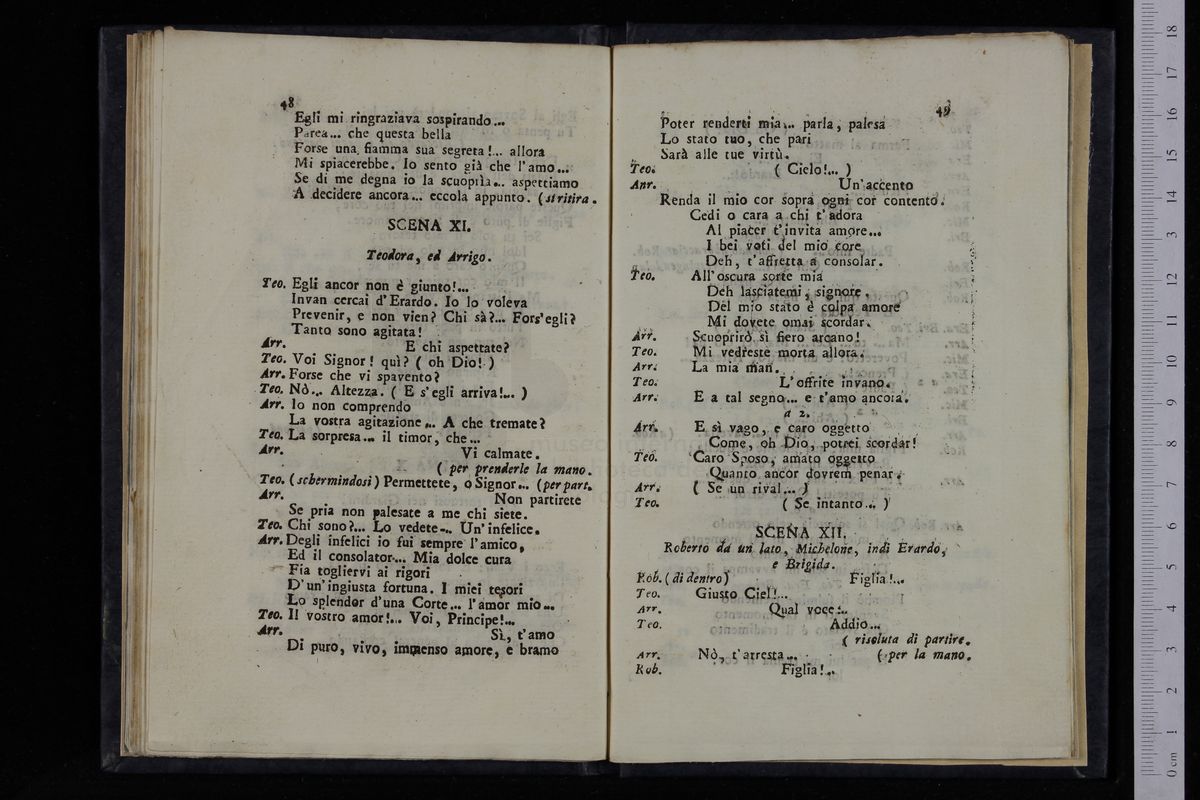 48
Egli mi ringraziava sospirando...
Parea... che questa bella
Forse una fiamma sua segreta!... allora
Mi spiacerebbe. Io sento già che l'amo...
Se di me degna io la scuoprìa... aspettiamo
A decidere ancora... eccola appunto. (si ritira.
SCENA XI.
Teodora, ed Arrigo.
Teo. Egli ancor non è giunto!...
Invan cercai d'Erardo. Io lo voleva
Prevenir, e non vien? Chi sà?... Fors'egli?
Tanto sono agitata!
Arr. E chi aspettate?
Teo. Voi Signor! quì? ( oh Dio! )
Arr. Forse che vi spavento?
Teo. Nò... Altezza. ( E s'egli arriva!... )
Arr. Io non comprendo
La vostra agitazione... A che tremate?
Teo. La sorpresa... il timor, che...
Arr. Vi calmate.
( per prenderle la mano.
Teo. (schermindosi) Permettete, o Signor... (per part.
Arr. Non partirete
Se pria non palesate a me chi siete.
Teo. Chi sono?... Lo vedete... Un'infelice.
Arr. Degli infelici io fui sempre l'amico,
Ed il consolator... Mia dolce cura
Fia togliervi ai rigori
D'un'ingiusta fortuna. I miei tesori
Lo splendor d'una Corte... l'amor mio...
Teo. Il vostro amor!... Voi, Principe!...
Arr. Sì, t'amo
Di puro, vivo, immenso amore, e bramo
49
Poter renderti mia... parla, palesa
Lo stato tuo, che pari
Sarà alle tue virtù.
Teo. ( Cielo!... )
Anr. Un'accento
Renda il mio cor sopra ogni cor contento.
Cedi o cara a chi t'adora
Al piacer t'invita amore...
I bei voti del mio core
Deh, t'affretta a consolar.
Teo. All'oscura sorte mia
Deh lasciatemi, signore.
Del mio stato è colpa amore
Mi dovete omai scordar.
Arr. Scuoprirò sì fiero arcano!
Teo. Mi vedreste morta allora.
Arr. La mia man.
Teo. L'offrite invano.
Arr. E a tal segno... e t'amo ancora.
a 2.
Arr. E sì vago, e caro oggetto
Come, oh Dio, potrei scordar!
Teo. Caro Sposo, amato oggetto
Quanto ancor dovrem penar.
Arr. ( Se un rival... )
Teo. ( Se intanto... )
SCENA XII.
Roberto da un lato, Michelone, indi Erardo,
e Brigida.
Rob. (di dentro) Figlia!...
Teo. Giusto Ciel!...
Arr. Qual voce!..
Teo. Addio...
( risoluta di partire.
Arr. Nò, t'arresta... ( per la mano.
Rob. Figlia!...